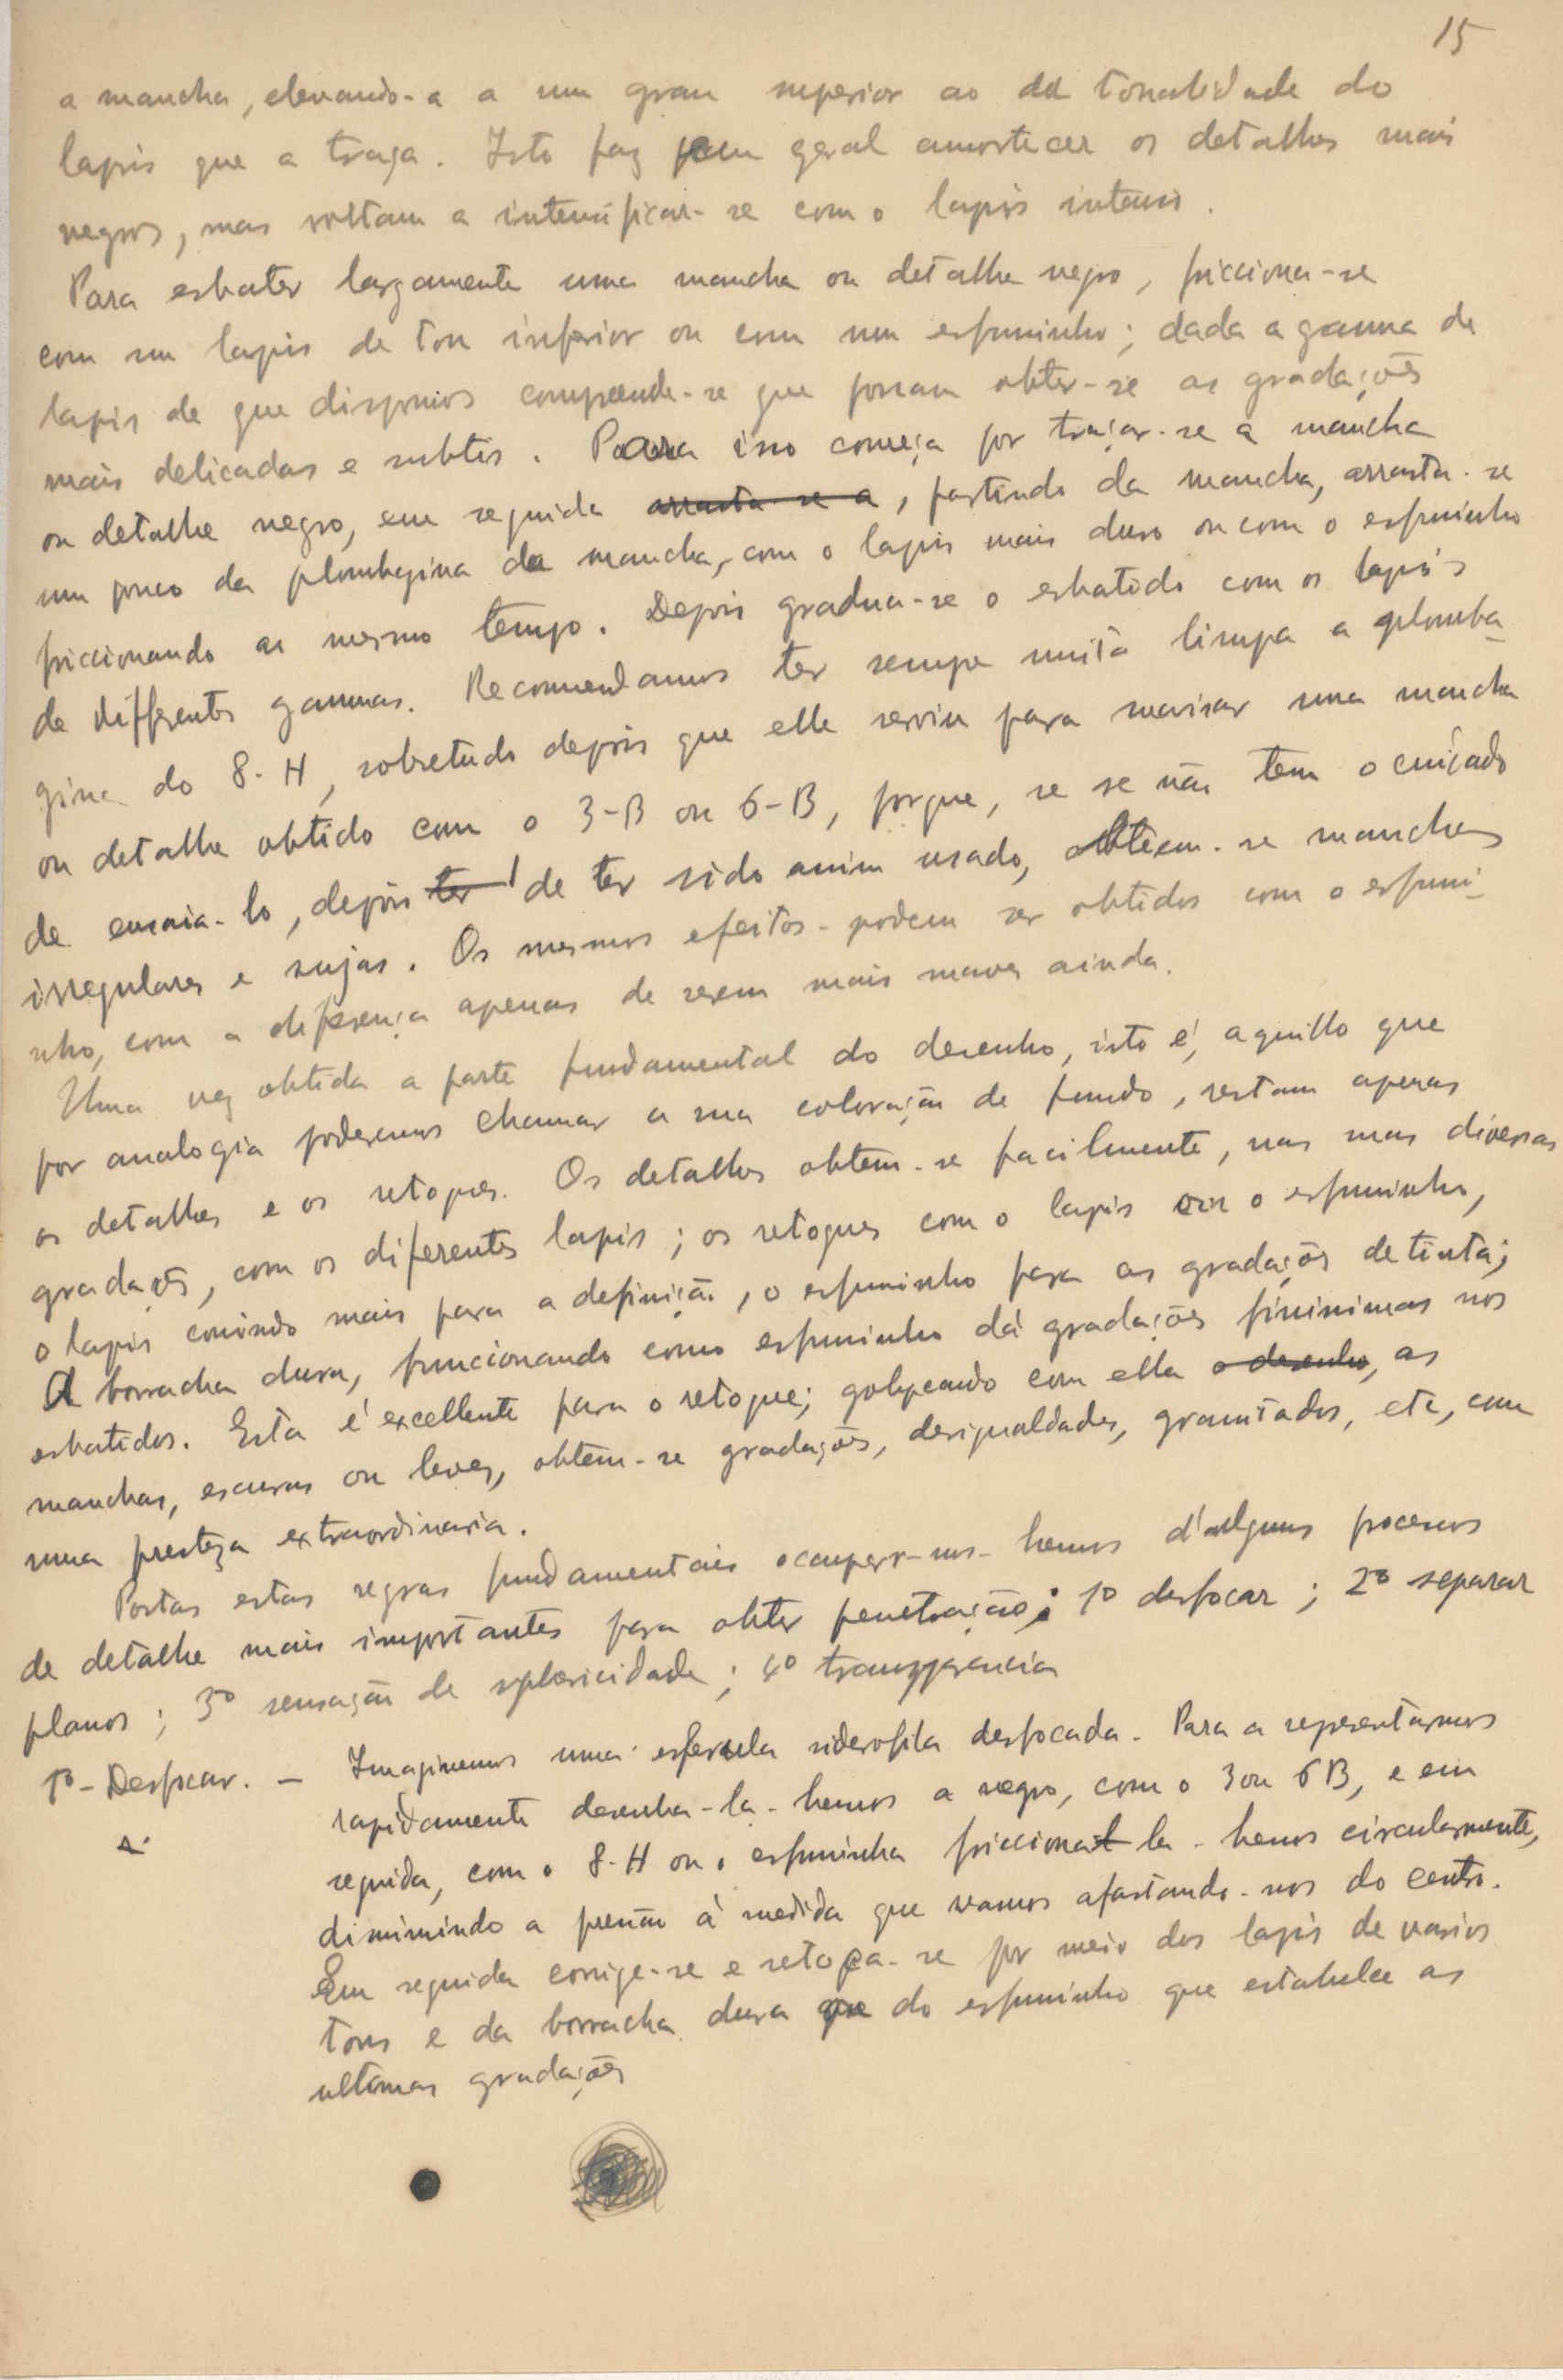 15
a mancha, elevando-a a um grau superior ao da tonalidade do
lapis que a traça. Isto faz em geral amortecer os detalhes mais
negros, mas voltam a intensificar-se com o lapis intenso.
Para esbater largamente uma mancha ou detalhe negro, fricciona-se
com um lapis de tom inferior ou com um esfuminho; dada a gamma de
lapis de que dispomos comprende-se que possam obter-se as gradações
mais delicadas e subtis. Para isso começa por traçar-se a mancha
ou detalhe negro, em seguida arrasta-se a, partindo da mancha, arrasta-se
um pouco da plombagina da mancha, com o lapis mais duro ou com o esfuminho
friccionando ao mesmo tempo. Depois gradua-se o esbatido com os lapis
de differentes gammas. Recomendamos ter sempre muito limpa a plomba-
gina do 8-H, sobretudo depois que elle serviu para suavisar uma mancha
ou detalhe obtido com o 3-B ou 6-B, porque, se se não tem o cuidado
de ensaia-lo, depois ter de ter sido assim usado, obteem-se manchas
irregulares e sujas. Os mesmos efeitos podem ser obtidos com o esfumi-
nho, com a diferença apenas de serem mais suaves ainda.
Uma vez obtida a parte fundamental do desenho, isto é, aquillo que
por analogia poderemos chamar a sua coloração de fundo, restam apenas
os detalhes e os retoques. Os detalhes obtem-se facilmente, nas suas diversas
gradações, com os diferentes lapis; os retoques com o lapis ou o esfuminho,
o lapis servindo mais para a definição, o esfuminho para as gradações de tinta;
A borracha dura, funcionando como esfuminho dá gradações fininimas nos
esbatidos. Esta é excellente para o retoque; golpeando com ella o desenho, as
manchas, escuras ou leves, obtem-se gradações, desigualdades, granitados, etc, com
uma presteza extraordinaria.
Postas estas regras fundamentais occupar-nos-hemos d'alguns processos
de detalhe mais importantes para obter penetração: 1º desfocar; 2º separar
planos; 3º sensação de sphericidade; 4º transparencia
1º - Desfocar. - Imaginemos uma esferula siderofila desfocada. Para a representarmos
rapidamente desenha-la-hemos a negro, com o 3 ou 6B, e em
seguida, com o 8-H ou o esfuminho fricciona-la-hemos circularmente,
diminuindo a pressão á medida que vamos afastando-nos do centro.
Em seguida corrige-se e retoca-se por meio dos lapis de varios
tons e da borracha dura que do esfuminho que estabelece as
ultimas gradações